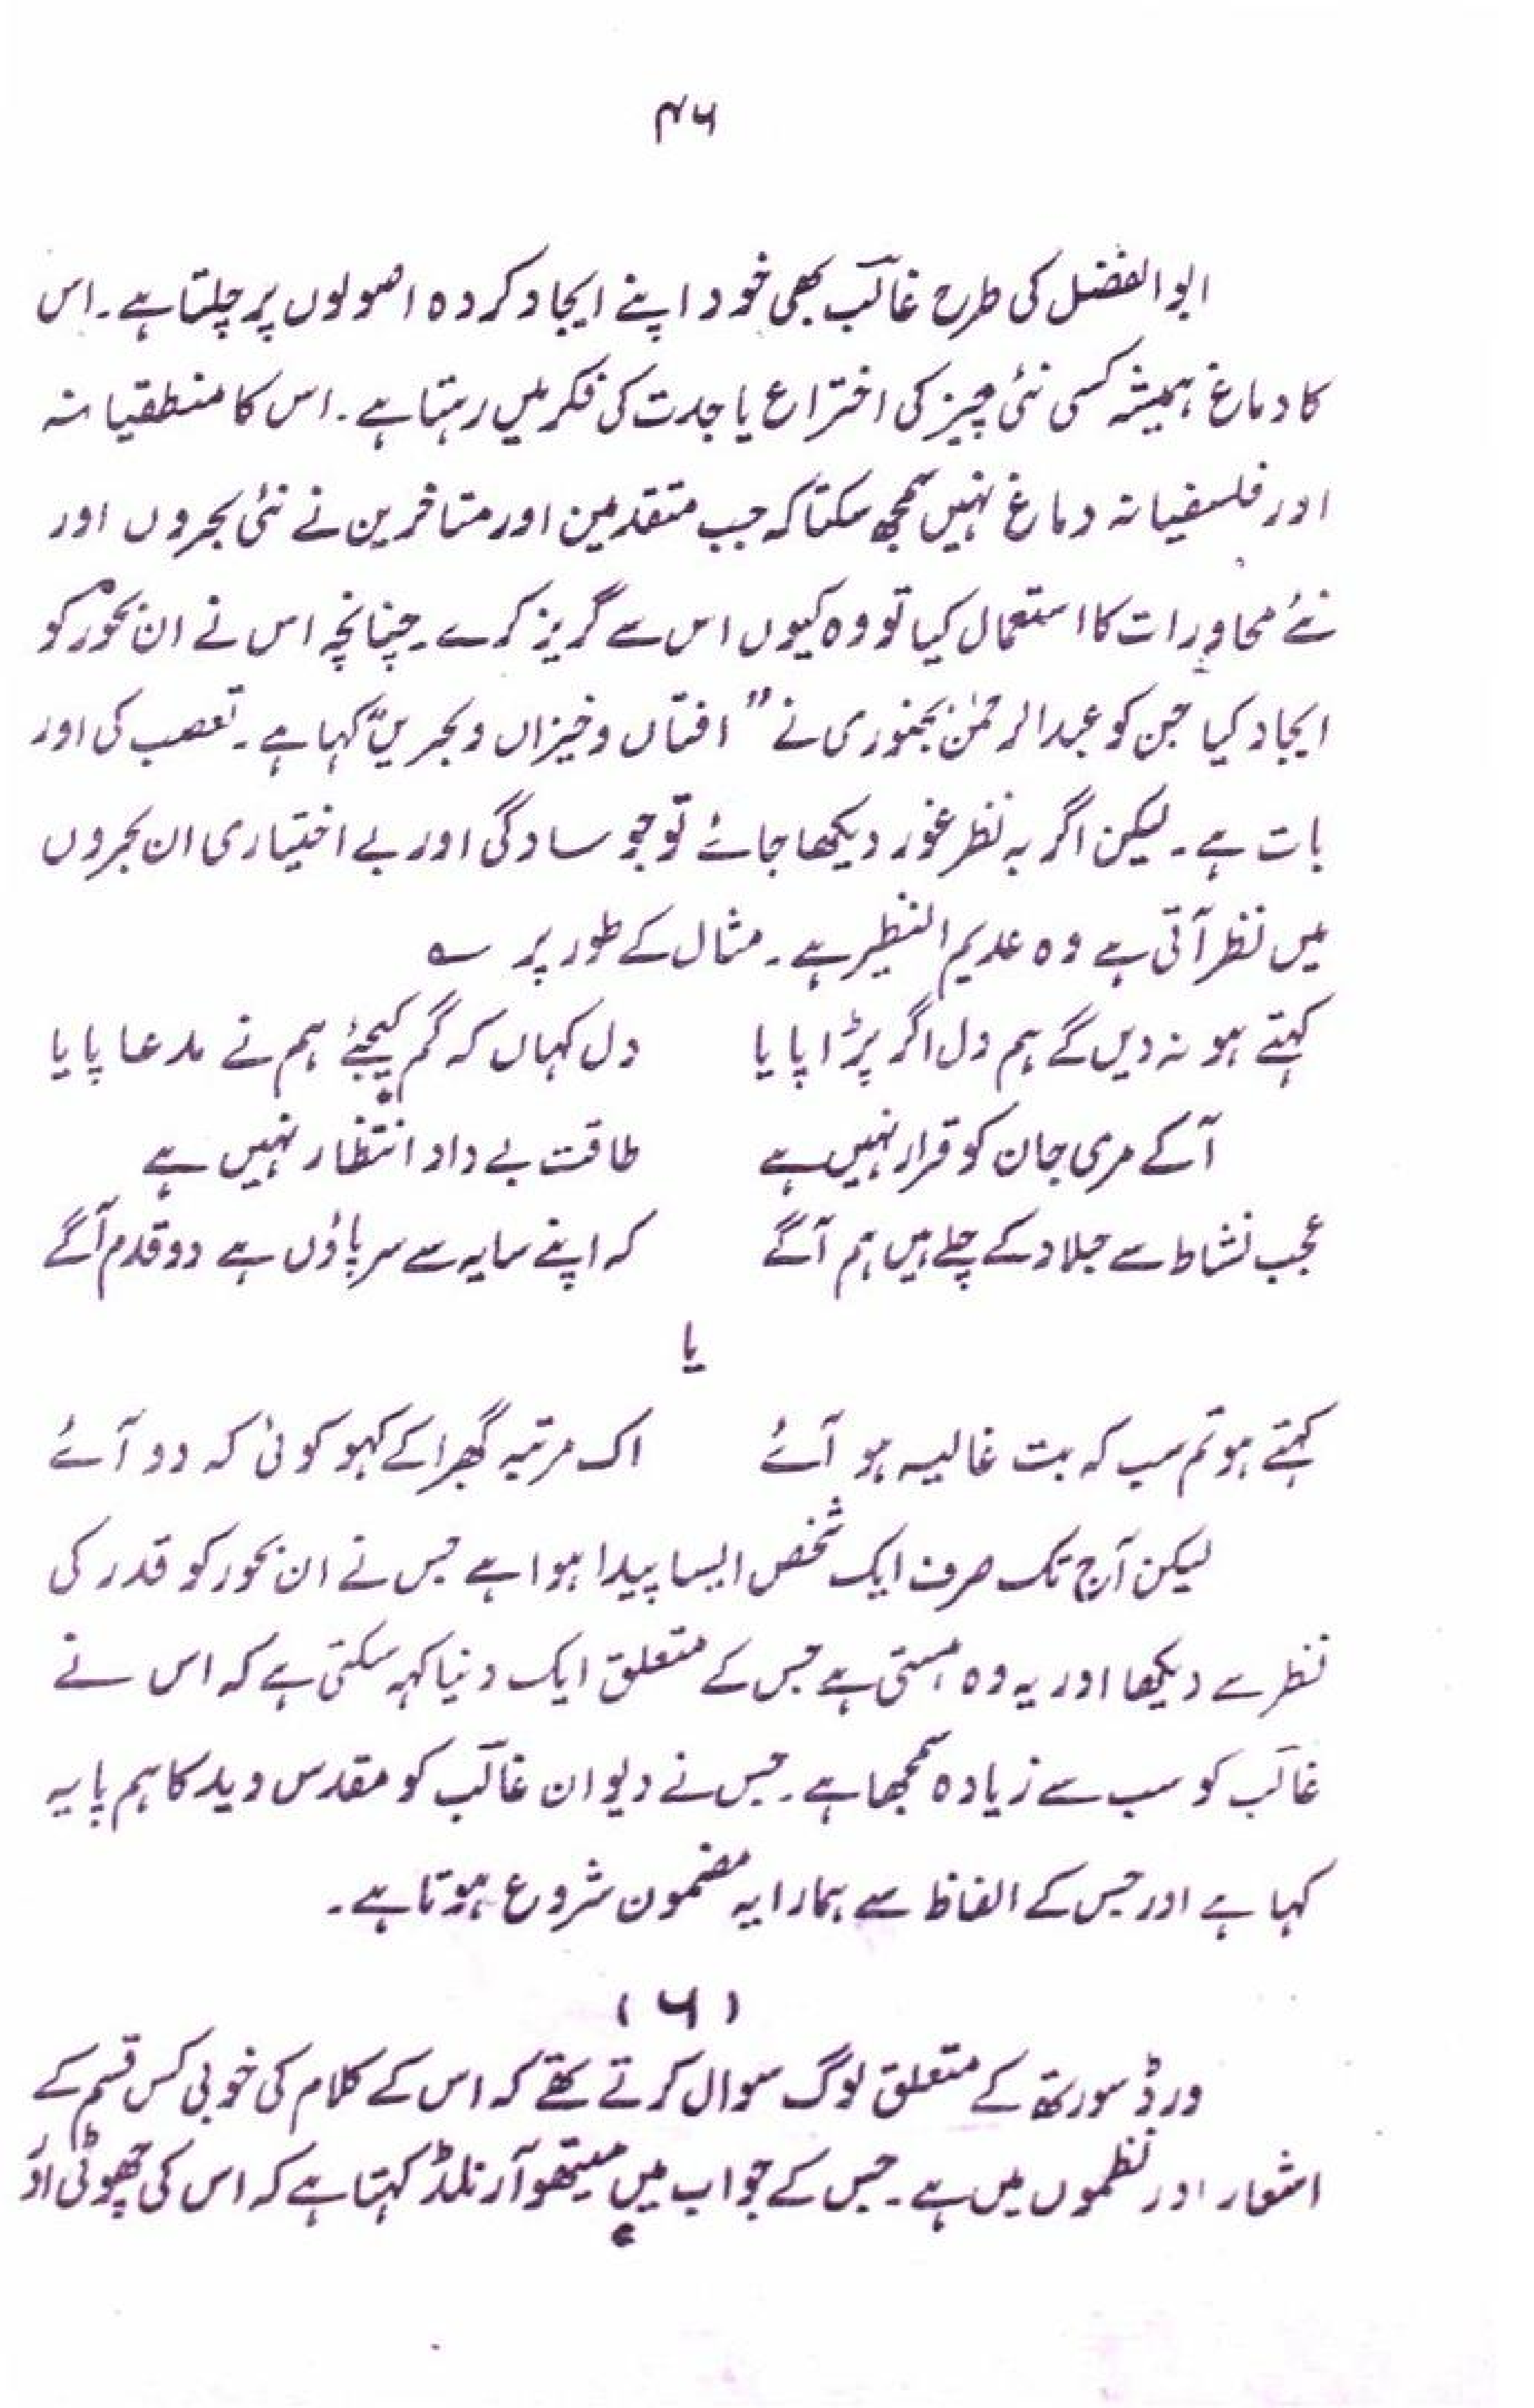 ۴۶
ابوالفضل کی طرح غالبؔ بھی خود اپنے ایجاد کردہ اصولوں پر چلتا ہے۔ اس
کا دماغ ہمیشہ کسی نئی چیز کی اختراع یا جدت کی فکر میں رہتا ہے۔ اس کا منطقیانہ
اور فلسفیانہ دماغ نہیں سمجھ سکتا کہ جب متقدمین اور متاخرین نے نئی بحروں اور
نئے محاورات کا استعمال کیا تو وہ کیوں اس سے گریز کرے۔ چنانچہ اس نے ان بحور کو
ایجاد کیا جن کو عبدالرحمٰن بجنوری نے "افتاں و خیزاں و بحریں" کہا ہے۔ تعصب کی اور
بات ہے۔ لیکن اگر بہ نظر غور دیکھا جائے تو جو سادگی اور بے اختیاری ان بحروں
میں نظر آتی ہے وہ عدیم النظیر ہے۔ مثال کے طور پر ؎
کہتے ہو نہ دیں گے ہم دل اگر پڑا پایا دل کہاں کہ گم کیجئے ہم نے مدعا پایا
آکے مری جان کو قرار نہیں ہے طاقت بے داد انتظار نہیں ہے
عجب نشاط سے جلاد کے چلے ہیں ہم آگے کہ اپنے سایہ سے سر پاؤں ہے دو قدم آگے
یا
کہتے ہو تم سب کہ بت غالیہ مو آئے اک مرتبہ گھبرا کے کہو کوئی کہ دو آئے
لیکن آج تک صرف ایک شخص ایسا پیدا ہوا ہے جس نے ان بحور کو قدر کی
نظر سے دیکھا اور یہ وہ ہستی ہے جس کے متعلق ایک دنیا کہہ سکتی ہے کہ اس نے
غالبؔ کو سب سے زیادہ سمجھا ہے۔ جس نے دیوان غالبؔ کو مقدس وید کا ہم پایہ
کہا ہے اور جس کے الفاظ سے ہمارا یہ مضمون شروع ہوتا ہے۔
(۶)
ورڈسورتھ کے متعلق لوگ سوال کرتے تھے کہ اس کے کلام کی خوبی کس قسم کے
اشعار اور نظموں میں ہے۔ جس کے جواب میں میتھو آرنلڈ کہتا ہے کہ اس کی چھوٹی اور